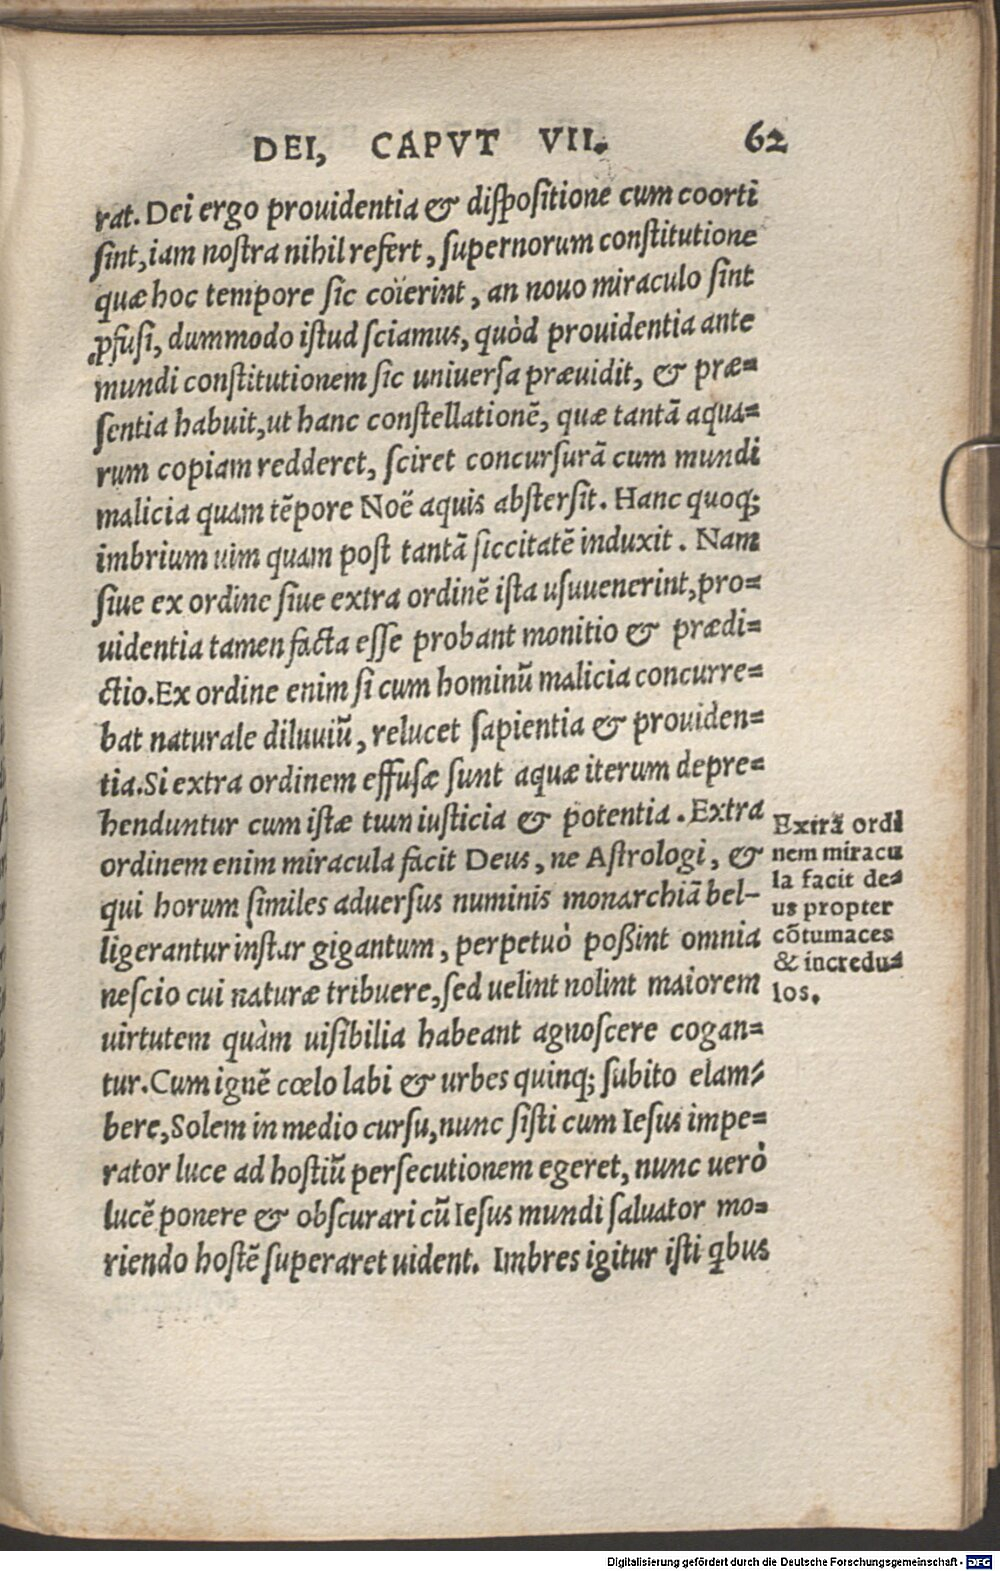 DEI, CAPVT VII. 62
rat. Dei ergo prouidentia & diſpoſitione cum coorti
ſint, iam noſtra nihil refert, ſupernorum conſtitutione
quæ hoc tempore ſic coïerint, an nouo miraculo ſint
ꝓfuſi, dummodo iſtud ſciamus, quòd prouidentia ante
mundi conſtitutionem ſic uniuerſa præuidit, & præ⸗
ſentia habuit, ut hanc conſtellationē, quæ tantā aqua⸗
rum copiam redderet, ſciret concurſurā cum mundi
malicia quam tēpore Noë aquis abſterſit. Hanc quoqꝫ
imbrium uim quam poſt tantā ſiccitatē induxit. Nam
ſiue ex ordine ſiue extra ordinē iſta uſuuenerint, pro⸗
uidentia tamen facta eſſe probant monitio & prædi⸗
ctio. Ex ordine enim ſi cum hominū malicia concurre⸗
bat naturale diluuiū, relucet ſapientia & prouiden⸗
tia. Si extra ordinem effuſæ ſunt aquæ iterum depre⸗
henduntur cum iſtæ tum iuſticia & potentia. Extra
ordinem enim miracula facit Deus, ne Aſtrologi, &
qui horum ſimiles aduerſus numinis monarchiā bel-
ligerantur inſtar gigantum, perpetuò poßint omnia
neſcio cui naturæ tribuere, ſed uelint nolint maiorem
uirtutem quàm uiſibilia habeant agnoſcere cogan⸗
tur. Cum ignē cœlo labi & urbes quinqꝫ ſubito elam⸗
bere, Solem in medio curſu, nunc ſiſti cum Ieſus impe⸗
rator luce ad hoſtiū perſecutionem egeret, nunc uerò
lucē ponere & obſcurari cū Ieſus mundi ſaluator mo⸗
riendo hoſtē ſuperaret uident. Imbres igitur iſti q̇bus
Extrā ordi
nem miracu
la facit de⸗
us propter
cōtumaces
& incredu⸗
los.
Digitalisierung gefördert durch die Deutsche Forschungsgemeinschaft - DFG